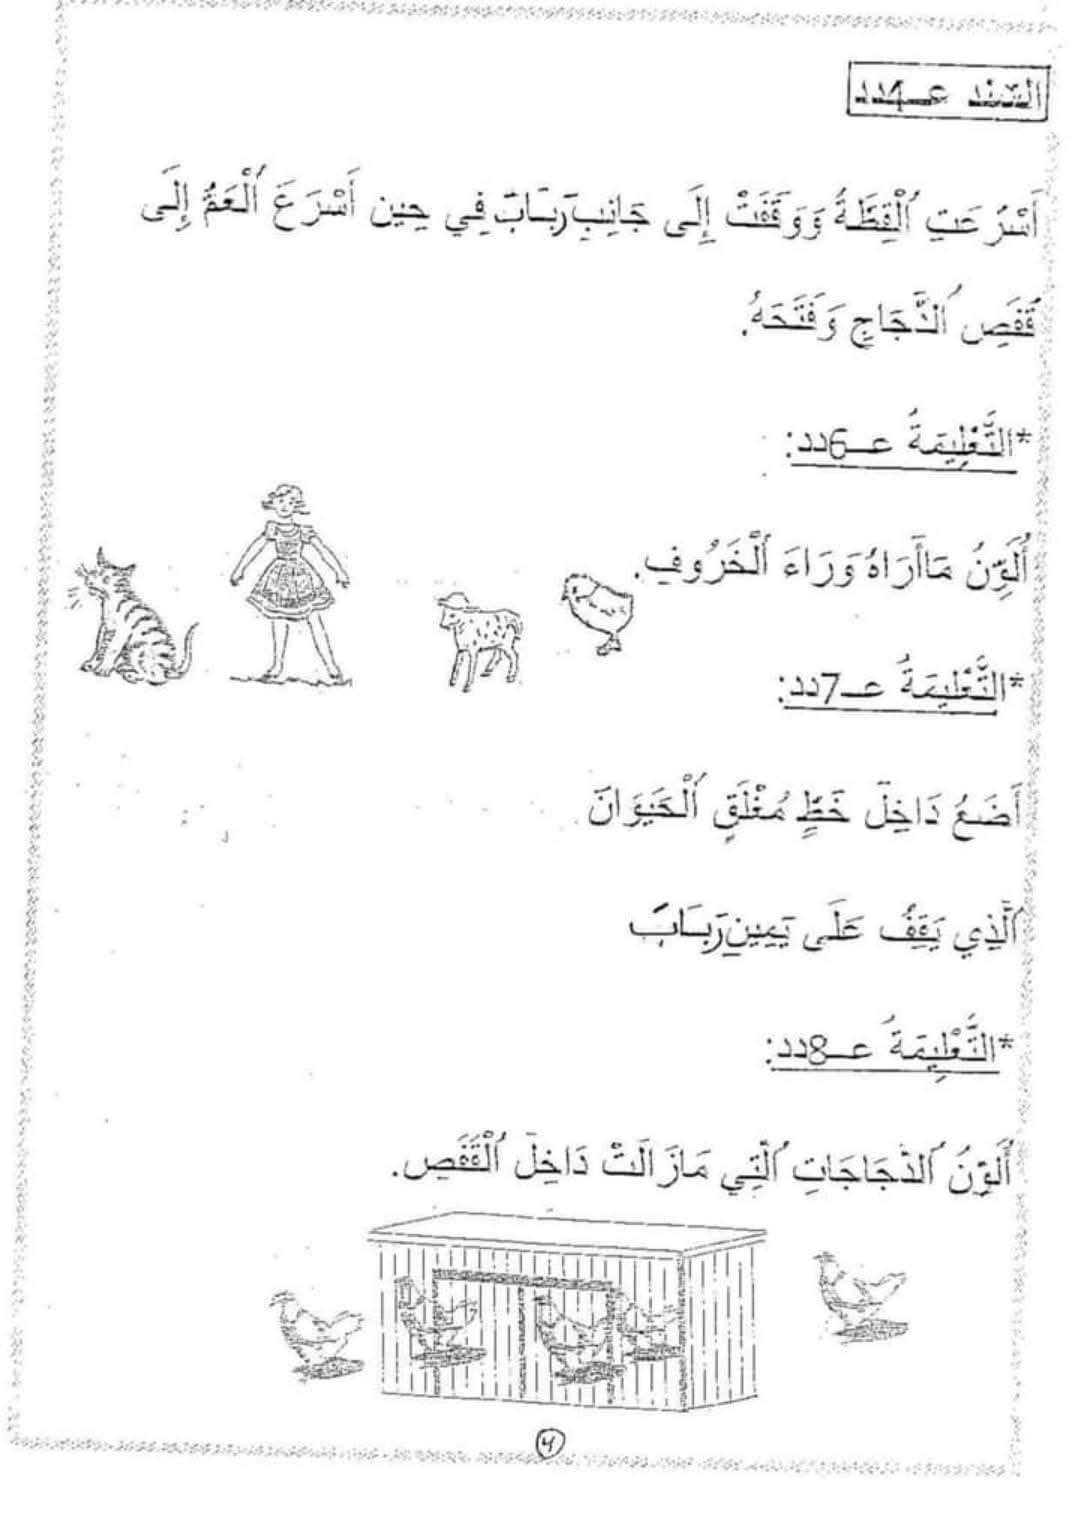 السّند عـ4ـدد
أَسْرَعَتِ ٱلْقِطَّةُ وَوَقَفَتْ إِلَى جَانِبِ رَبَابَ فِي حِين أَسْرَعَ ٱلْعَمُّ إِلَى
قَفَصِ ٱلدَّجَاجِ وَفَتَحَهُ.
*التَّعْلِيمَةُ عـ6ـدد:
أُلَوِّنُ مَاأَرَاهُ وَرَاءَ ٱلْخَرُوفِ.
*التَّعْلِيمَةُ عـ7ـدد:
أَضَعُ دَاخِلَ خَطٍّ مُغْلَقٍ ٱلْحَيَوَانَ
ٱلَّذِي يَقِفُ عَلَى يَمِينِ رَبَابَ
*التَّعْلِيمَةُ عـ8ـدد:
أُلَوِّنُ ٱلدَّجَاجَاتِ ٱلَّتِي مَازَالَتْ دَاخِلَ ٱلْقَفَصِ.
4